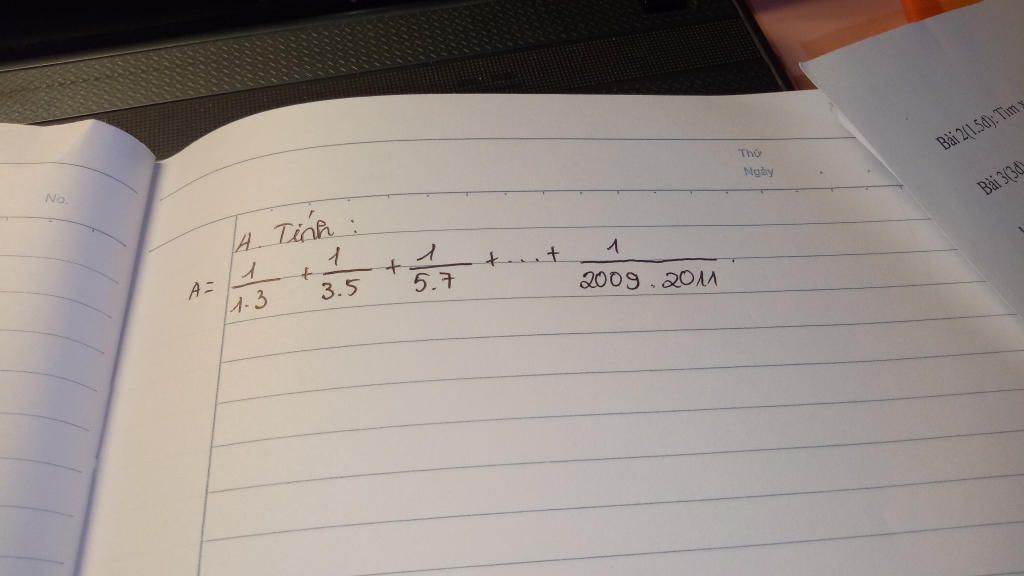 No.
Thứ
Ngày
A. Tính :
A = 1/1.3 + 1/3.5 + 1/5.7 + .... + 1/2009.2011 .
Bài 2(1.5đ): Tìm x
Bài 3(3đ)